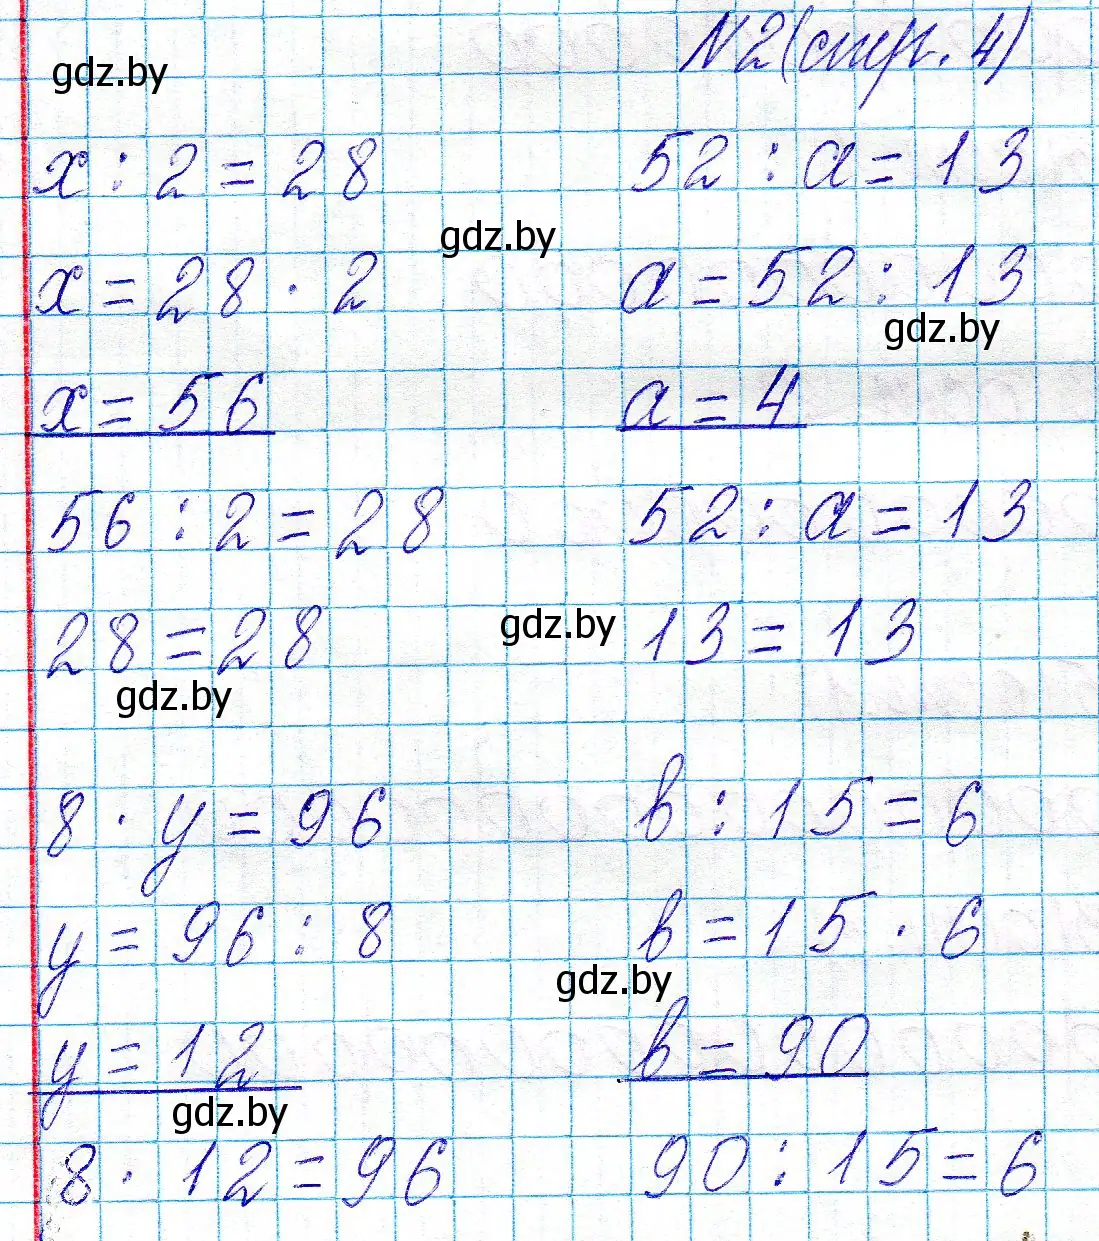 N2 (стр. 4)
gdz.by
x : 2 = 28
52 : a = 13
gdz.by
x = 28 · 2
a = 52 : 13
gdz.by
x = 56
a = 4
56 : 2 = 28
52 : a = 13
28 = 28
gdz.by
13 = 13
gdz.by
8 · y = 96
b : 15 = 6
y = 96 : 8
b = 15 · 6
gdz.by
y = 12
b = 90
gdz.by
8 · 12 = 96
90 : 15 = 6